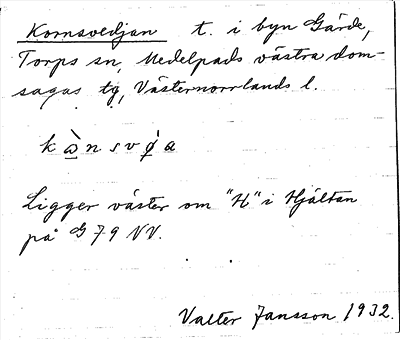 Kornsvedjan t. i byn Gärde,
Torps sn, Medelpads västra dom-
sagas tg, Västernorrlands l.
Ligger väster om "H" i Hjältan
på G 79 NV.
Valter Jansson 1932.